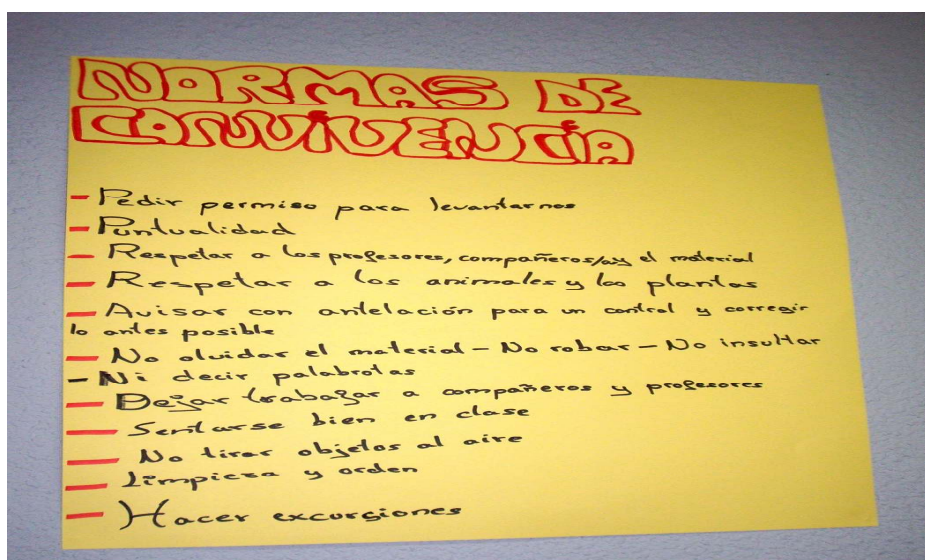 NORMAS DE
CONVIVENCIA
- Pedir permiso para levantarnos
- Puntualidad
- Respetar a los profesores, compañeros/as y el material
- Respetar a los animales y las plantas
- Avisar con antelación para un control y corregir
lo antes posible
- No olvidar el material - No robar - No insultar
- Ni decir palabrotas
- Dejar trabajar a compañeros y profesores
- Sentarse bien en clase
- No tirar objetos al aire
- Limpieza y orden
- Hacer excursiones